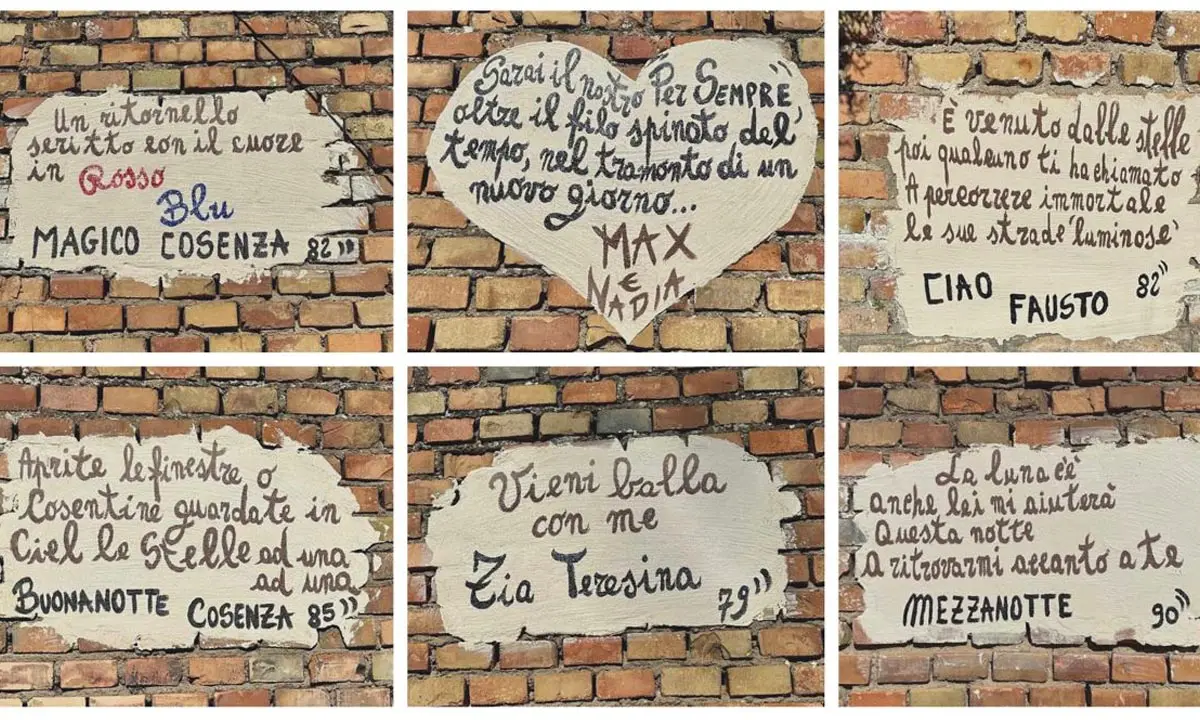 Un ritornello
scritto con il cuore
in Rosso
Blu
MAGICO COSENZA 82"
Sarai il nostro Per SEMPRE"
oltre il filo spinato del
tempo, nel tramonto di un
nuovo giorno...
MAX
E
NADIA
È venuto dalle stelle
poi qualcuno ti ha chiamato
A percorrere immortale
le sue strade "luminose"
CIAO
FAUSTO 82"
Aprite le finestre o
Cosentine guardate in
Ciel le Stelle ad una
ad una
BUONANOTTE
COSENZA 85"
Vieni balla
con me
Zia Teresina
79"
La luna c'è
anche lei mi aiuterà
Questa notte
A ritrovarmi accanto a te
MEZZANOTTE 90"